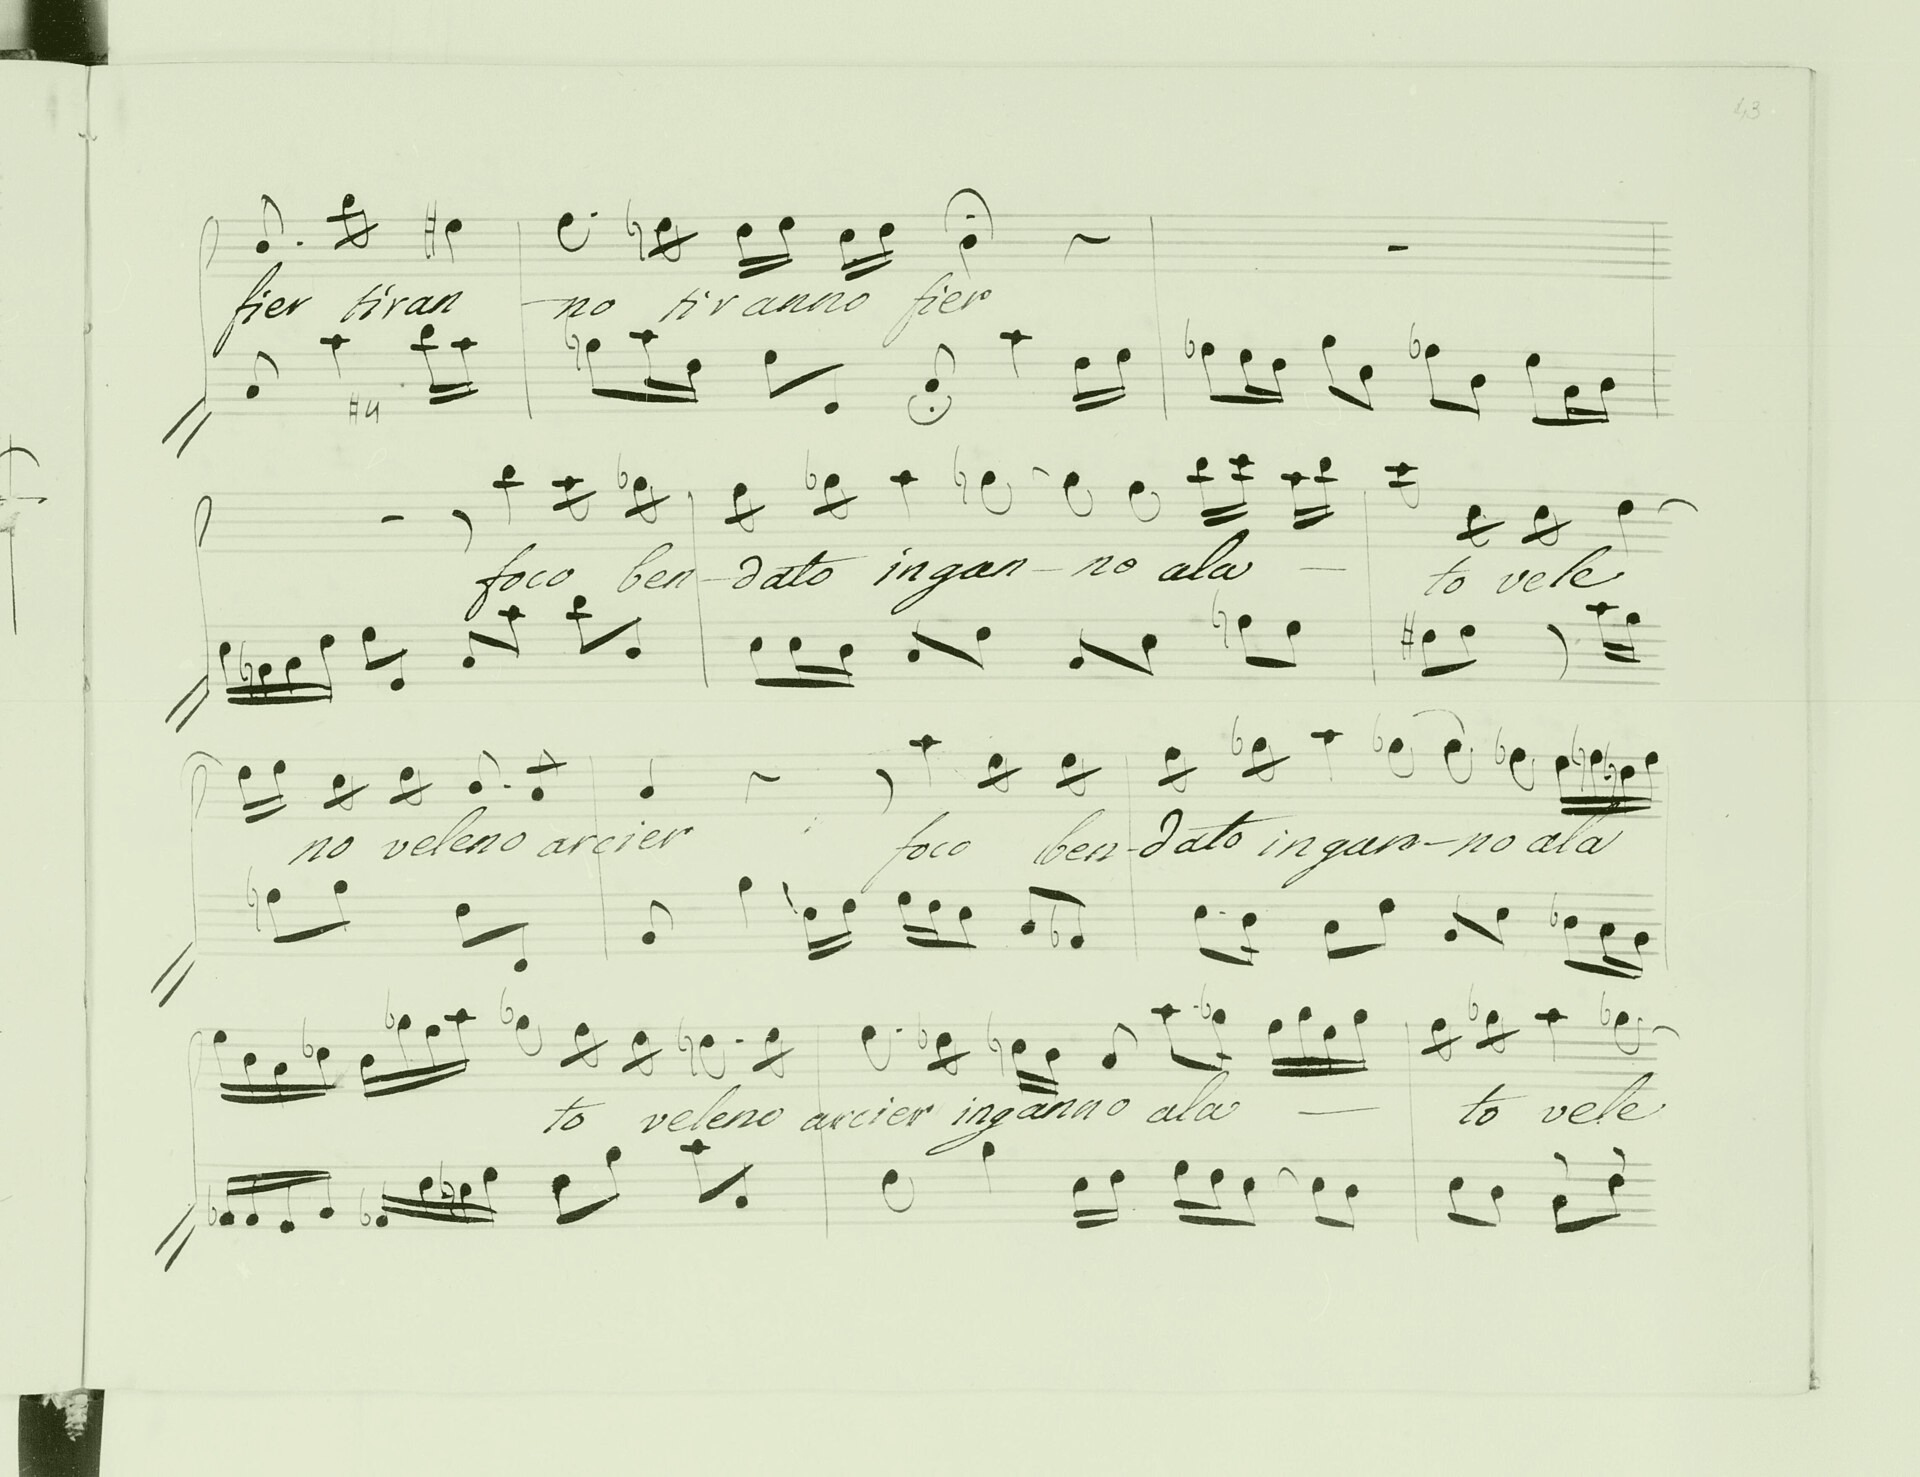 43
fier tiran - no tiranno fier
#4
foco ben - dato ingan - no ala — to vele
no veleno arcier foco ben - dato ingan - no ala
to veleno arcier inganno ala — to vele